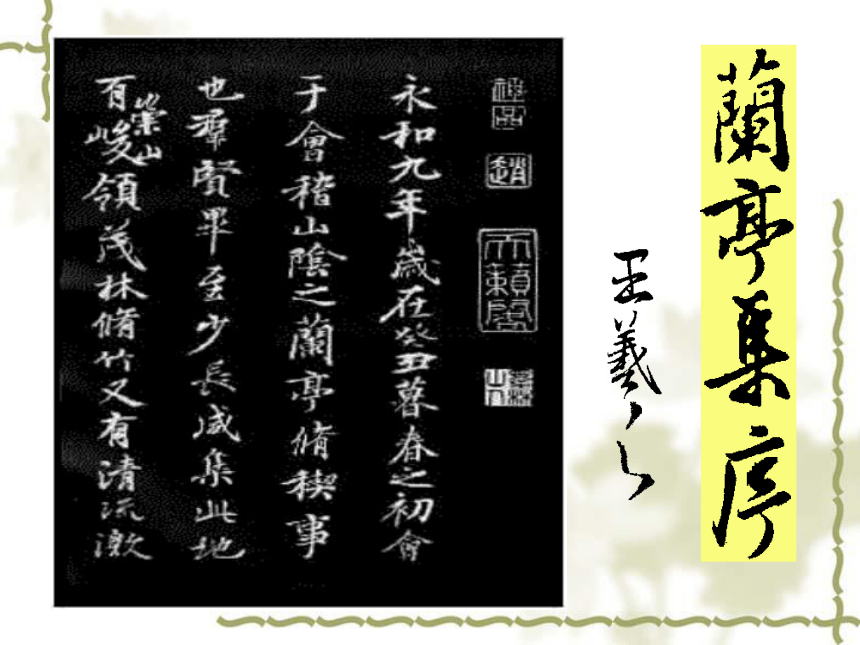 蘭亭集序
王羲之
神品
趙
天籟閣
永和九年歲在癸丑暮春之初會
于會稽山陰之蘭亭脩稧事
也羣賢畢至少長咸集此地
有崇山峻領茂林脩竹又有清流激